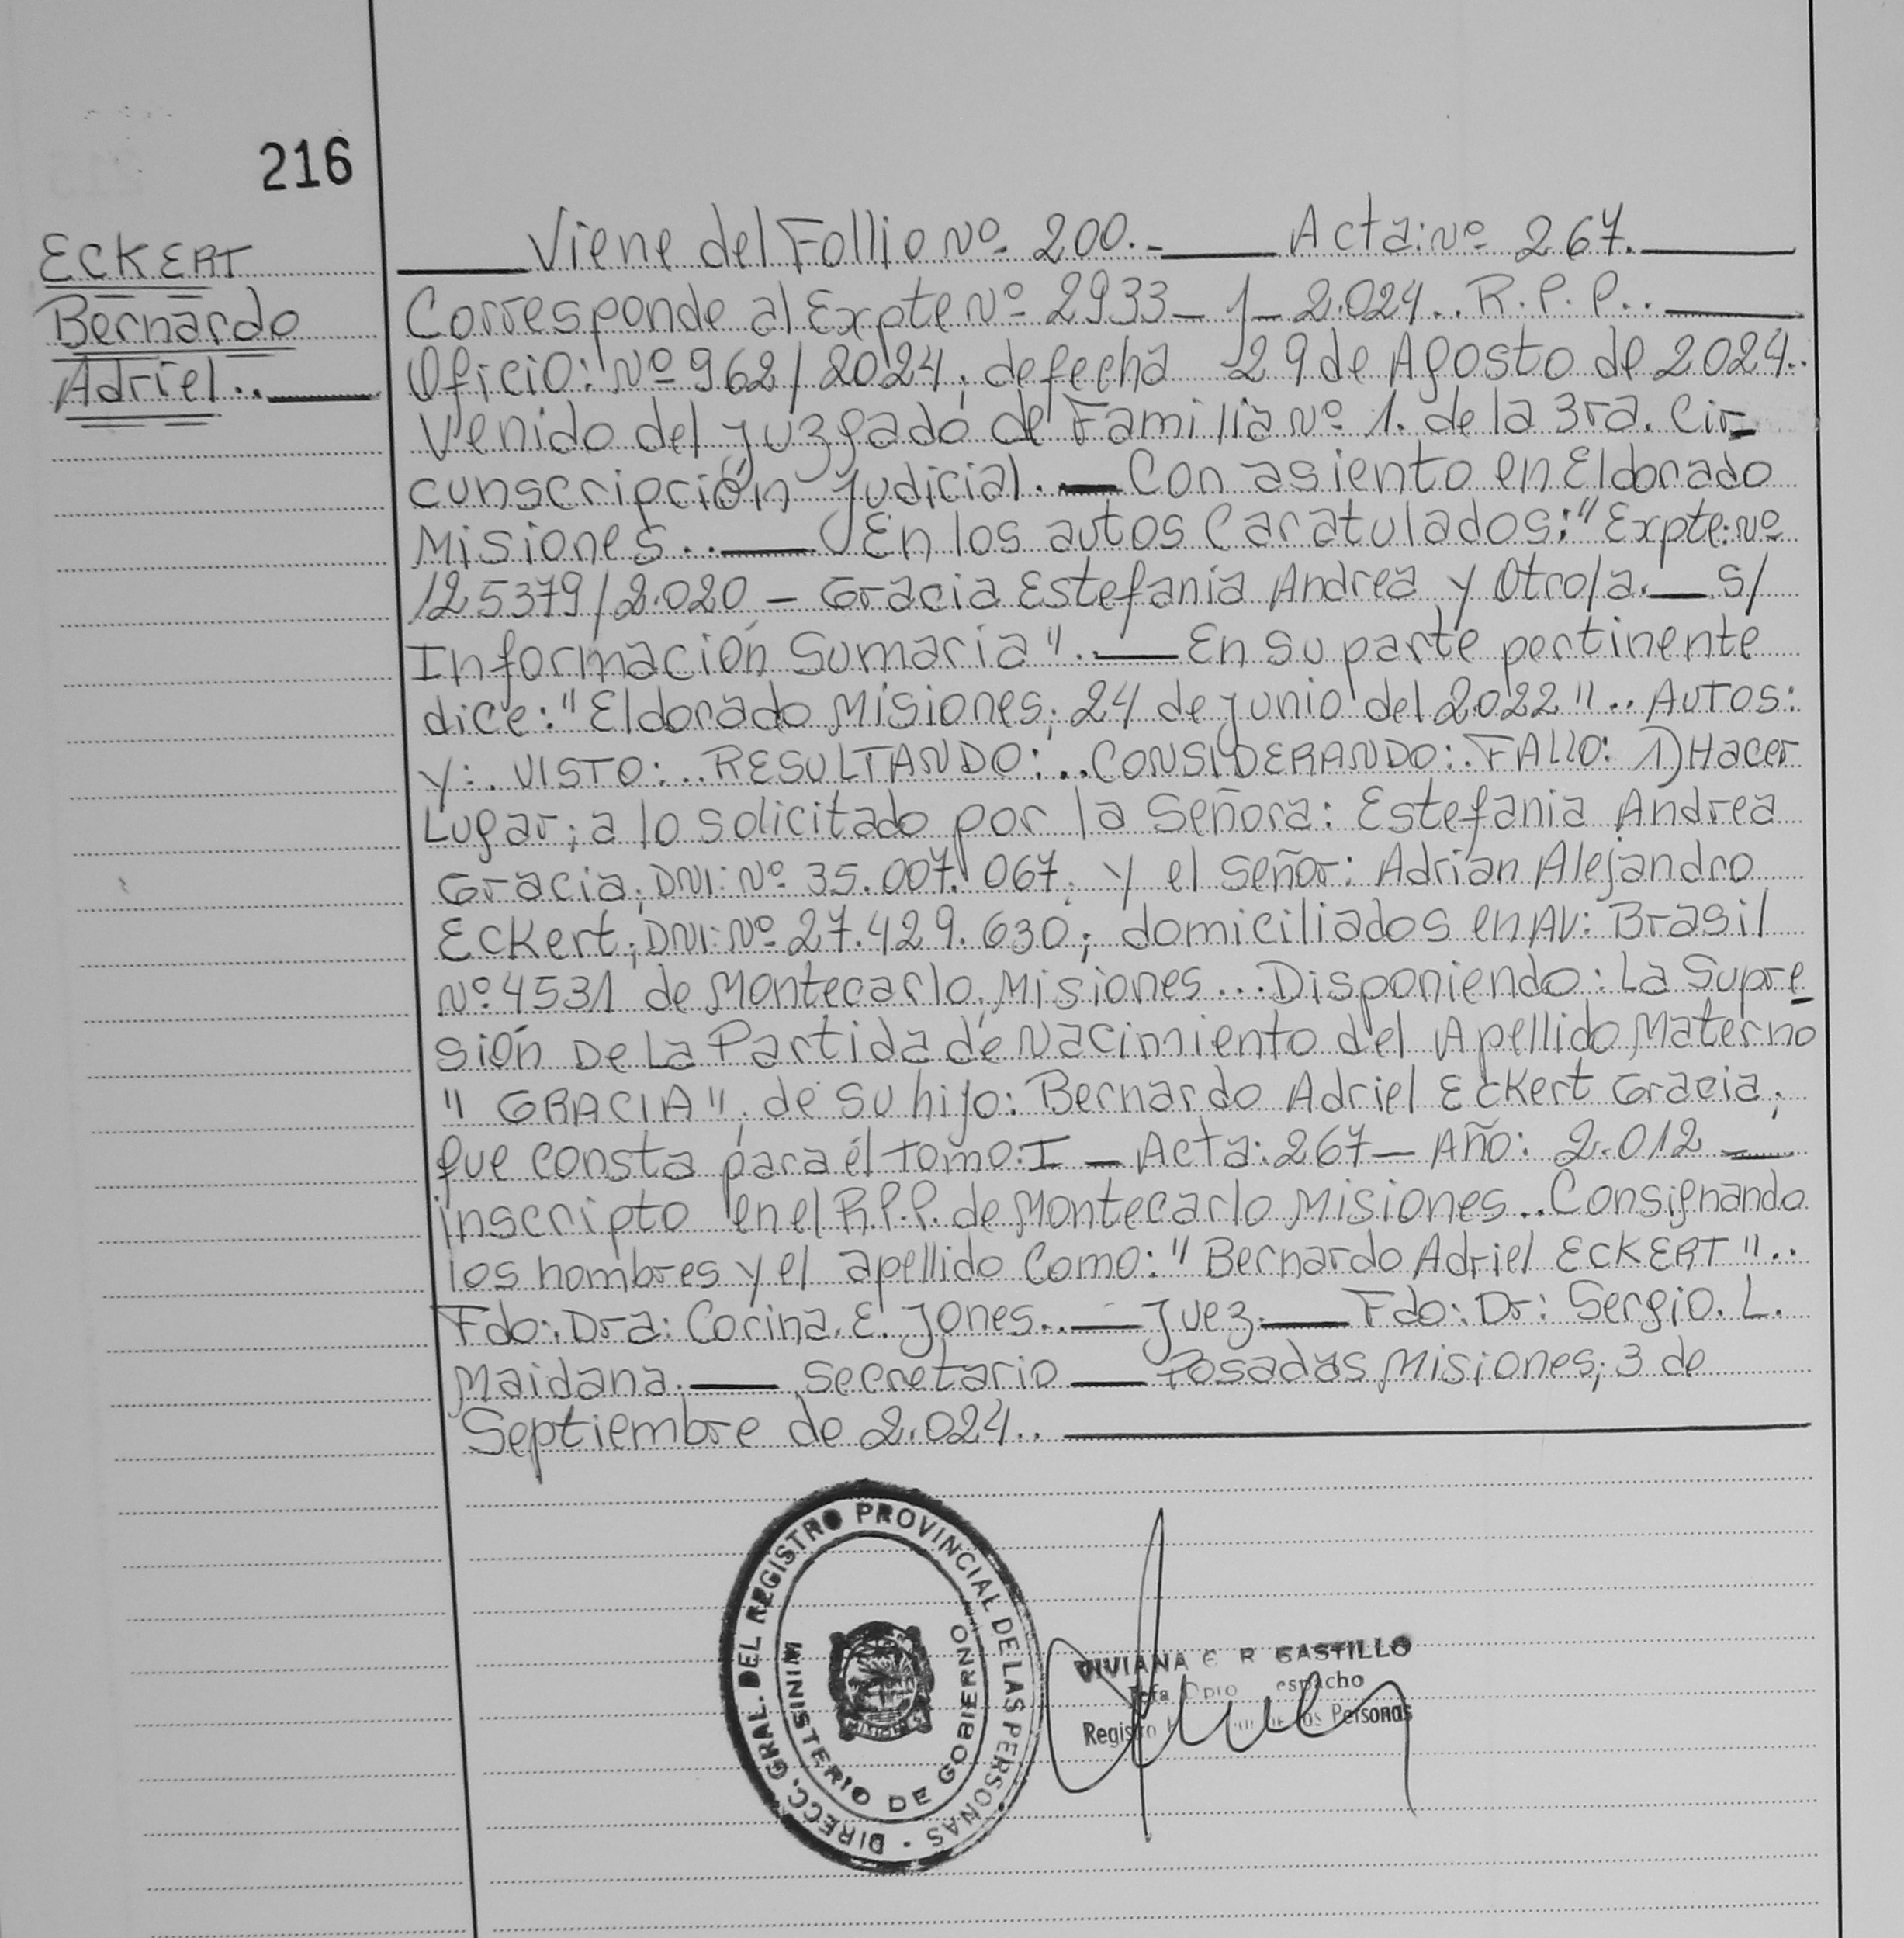 216
ECKERT
Bernardo
Adriel..
Viene del Follio Nº 200.- Acta: Nº 267.
Corresponde al Expte Nº 2933-1-2.024.. R.P.P..
Oficio: Nº 962/2024; de fecha 29 de Agosto de 2024..
Venido del Juzgado de Familia Nº 1. de la 3ra. Cir-
cunscripción Judicial.- Con asiento en Eldorado
Misiones..- En los autos Caratulados: "Expte: Nº
125379/2.020 - Gracia Estefania Andrea y Otro/a.- S/
Información Sumaria".- En su parte pertinente
dice: "Eldorado Misiones; 24 de Junio del 2.022".. AUTOS:
Y:. VISTO:.. RESULTANDO:.. CONSIDERANDO:. FALLO: 1) Hacer
Lugar; a lo solicitado por la Señora: Estefania Andrea
Gracia; DNI: Nº 35.007.067; y el señor: Adrian Alejandro
Eckert; DNI: Nº 27.429.630; domiciliados en AV: Brasil
Nº 4531 de Montecarlo Misiones... Disponiendo: La Supre-
sión De La Partida de Nacimiento del Apellido Materno
"GRACIA"; de su hijo: Bernardo Adriel Eckert Gracia;
que consta para el Tomo: I - Acta: 267 - Año: 2.012 -
inscripto en el R.P.P. de Montecarlo Misiones.. Consignando
los nombres y el apellido Como: "Bernardo Adriel ECKERT"..
Fdo:. Dra: Corina. E. Jones..- Juez.- Fdo: Dr: Sergio. L.
Maidana.- Secretario - Posadas Misiones; 3 de
Septiembre de 2.024..
DIRECC. GRAL. DEL REGISTRO PROVINCIAL DE LAS PERSONAS
MINISTERIO DE GOBIERNO
MISIONES
VIVIANA E R CASTILLO
Jefa Dpto espacho
Registro Personas